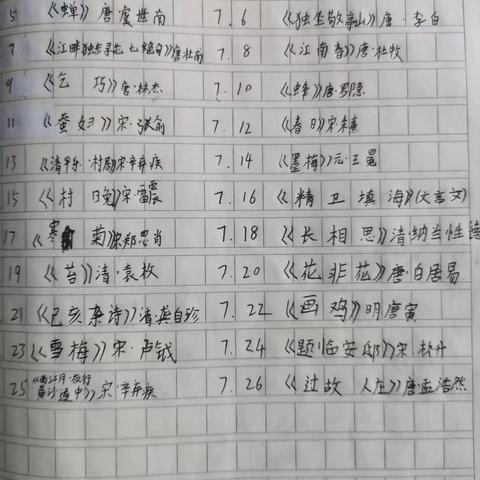 5 《蝉》唐·虞世南 7.6 《独坐敬亭山》唐·李白
7 《江畔独步寻花七绝句》唐杜甫 7.8 《江南春》唐·杜牧
9 《乞巧》唐·林杰 7.10 《蜂》唐·罗隐
11 《蚕妇》宋·张俞 7.12 《春日》宋朱熹
13 《清平乐·村居》宋辛弃疾 7.14 《墨梅》元·王冕
15 《村晚》宋·雷震 7.16 《精卫填海》(文言文)
17 《寒菊》宋郑思肖 7.18 《长相思》清纳兰性德
19 《苔》清·袁枚 7.20 《花非花》唐·白居易
21 《己亥杂诗》清·龚自珍 7.22 《画鸡》明唐寅
23 《雪梅》宋·卢钺 7.24 《题临安邸》宋·林升
25 《西江月·夜行黄沙道中》宋·辛弃疾 7.26 《过故人庄》唐孟浩然